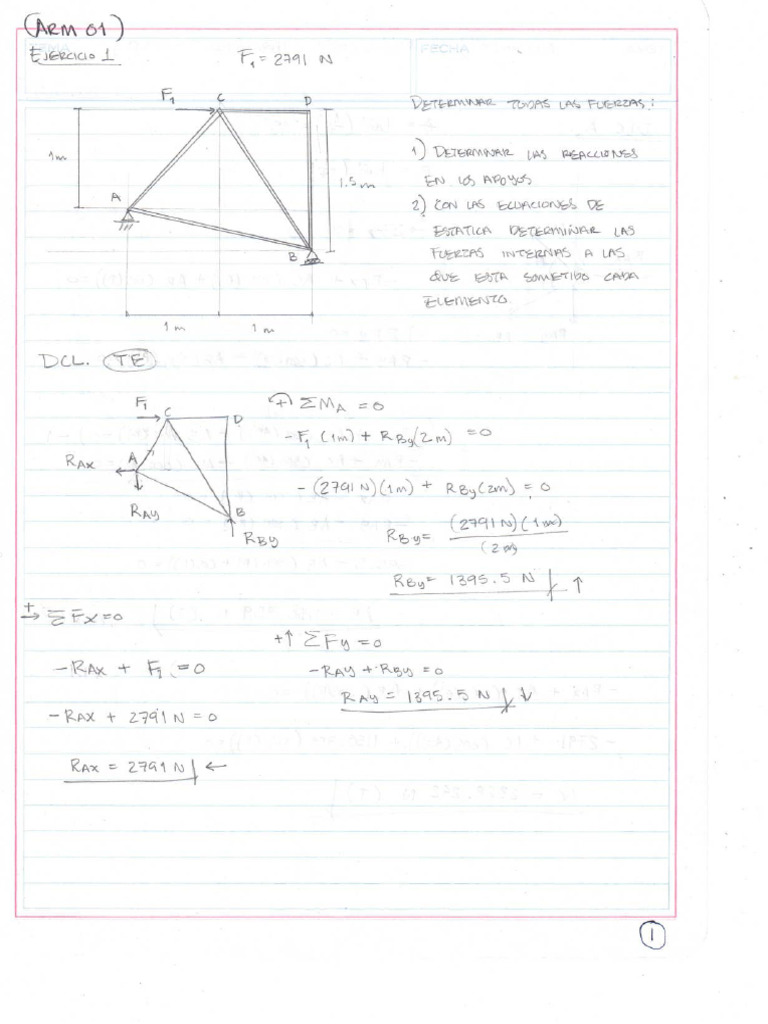 (ARM 01)
EJERCICIO 1
F1 = 2791 N
FECHA
F1
C
D
1m
1.5m
A
B
1m
1m
DETERMINAR TODAS LAS FUERZAS:
1) DETERMINAR LAS REACCIONES
EN LOS APOYOS
2) CON LAS ECUACIONES DE
ESTATICA DETERMINAR LAS
FUERZAS INTERNAS A LAS
QUE ESTA SOMETIDO CADA
ELEMENTO
DCL. TE
F1
C
D
A
RAX
RAY
B
RBY
+ ΣMA = 0
-F1 (1m) + RBy(2m) = 0
-(2791N)(1m) + RBy(2m) = 0
RBy = (2791N)(1m)
(2m)
RBy = 1395.5 N ↑
+→ ΣFx=0
-RAX + F1 = 0
-RAX + 2791N = 0
RAX = 2791 N ←
+↑ ΣFy = 0
-RAY + RBy = 0
RAY = 1395.5 N ↓
1